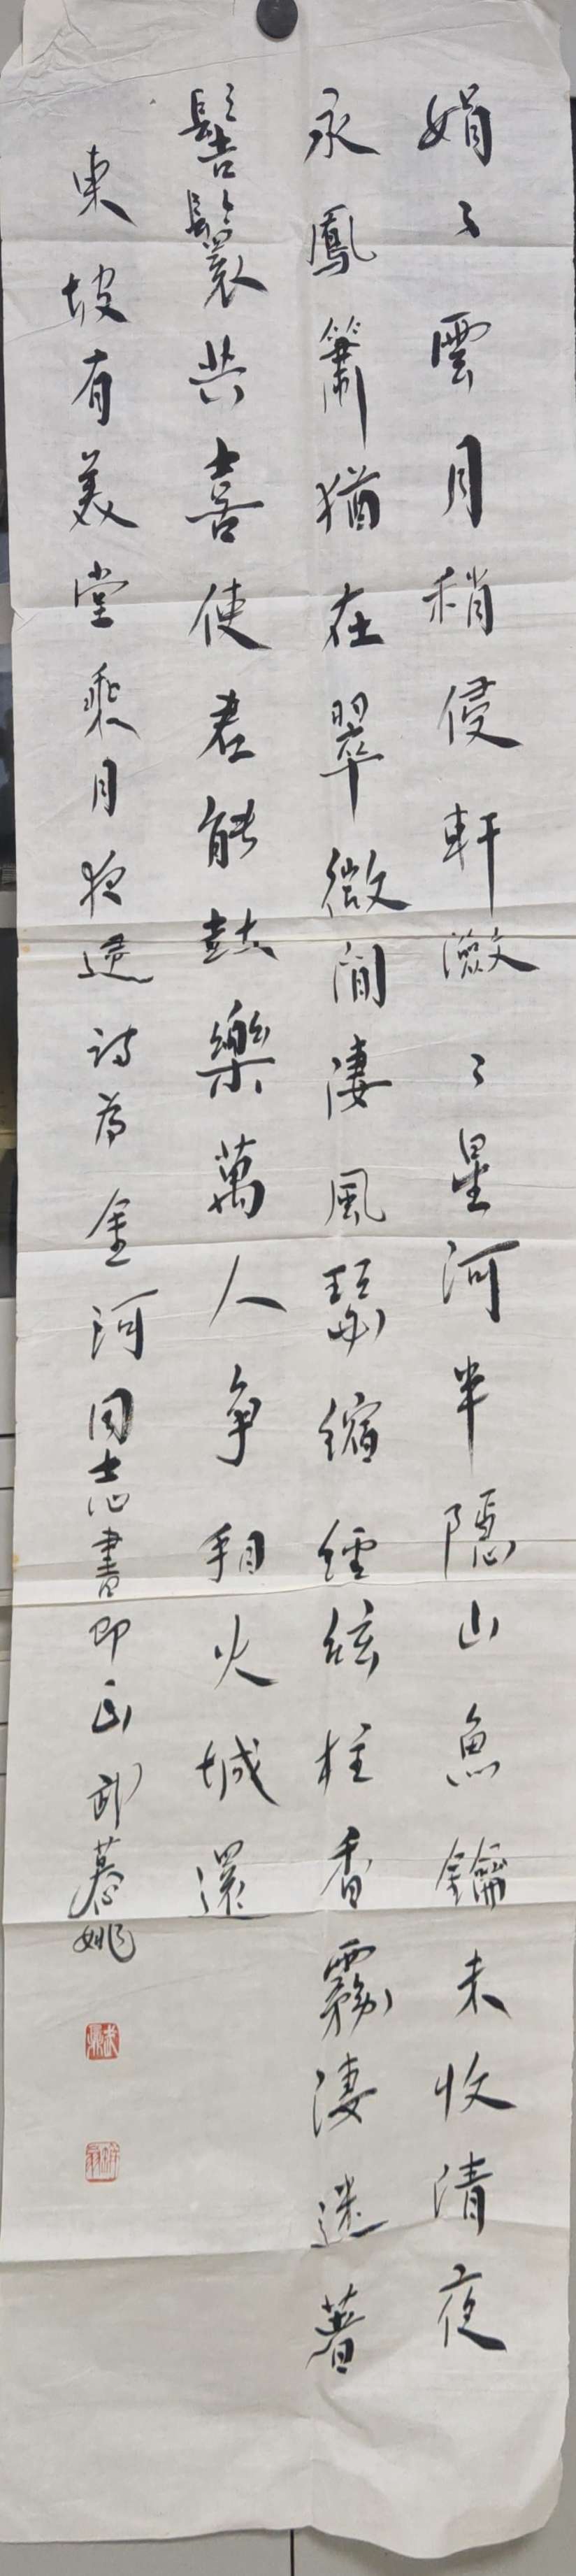 娟〻雲月稍侵軒瀲〻星河半隱山魚鑰未收清夜
永鳳簫猶在翠微間淒風瑟縮經絃柱香霧淒迷著
髻鬟共喜使君能鼓樂萬人爭看火城還
東坡有美堂乘月夜還詩為金河同志書即正 武慕姚